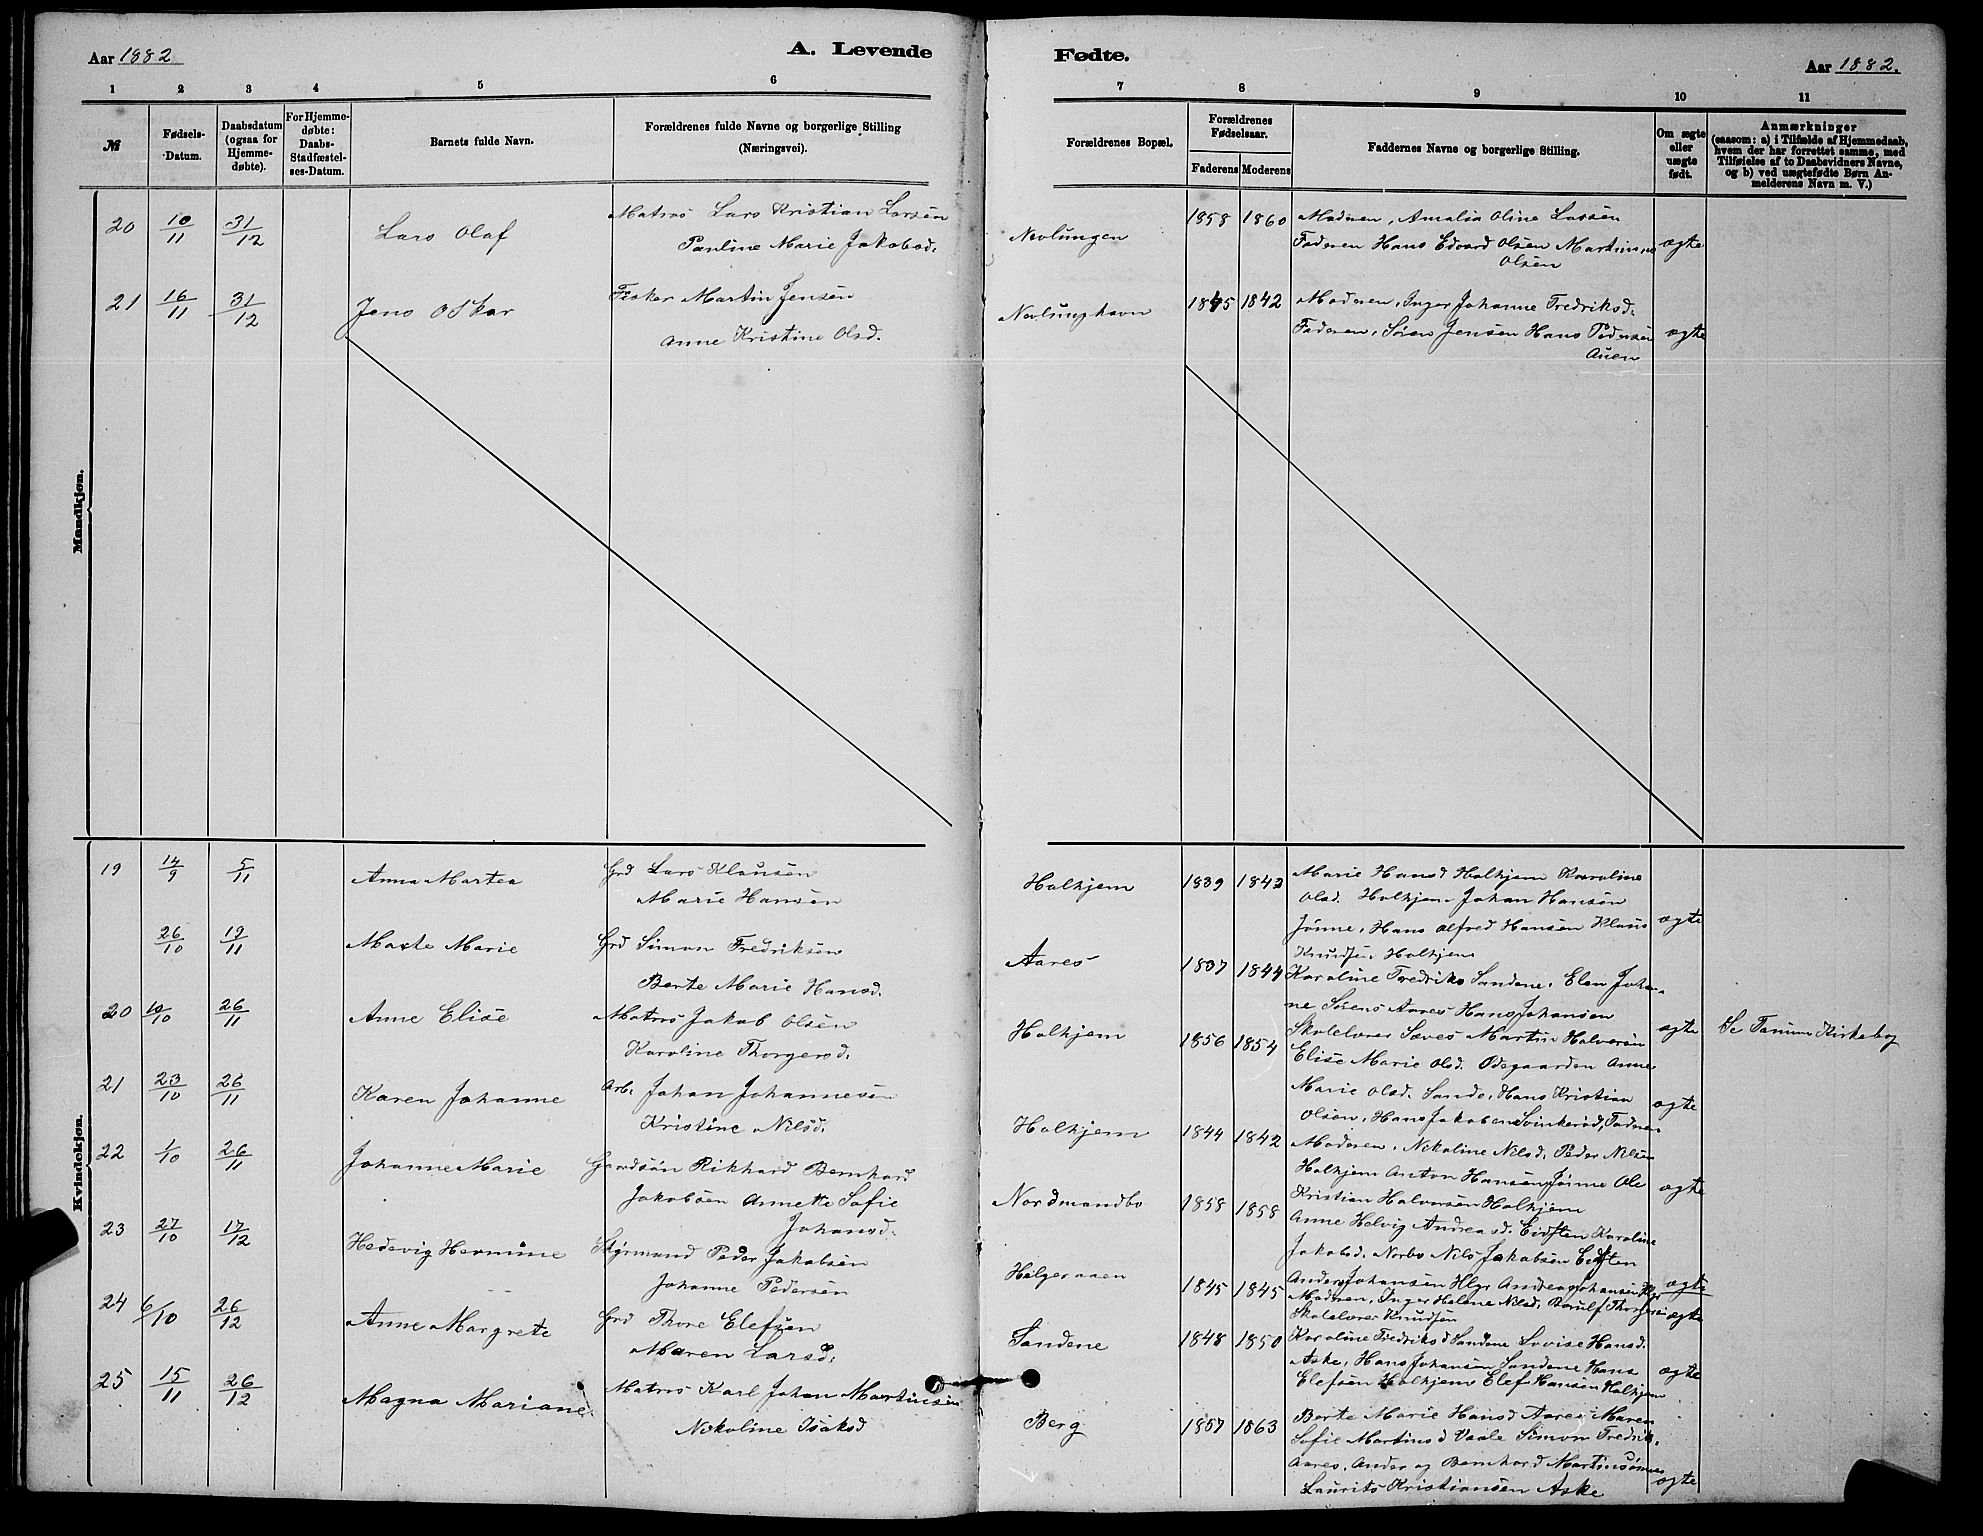 Aar 1882
A. Levende
1
2
3
4
5
6
№
Fødsels-
Datum.
Daabsdatum
(ogsaa for
Hjemme-
døbte).
For Hjemme-
døbte:
Daabs-
Stadfæstel-
ses-Datum.
Barnets fulde Navn.
Forældrenes fulde Navne og borgerlige Stilling
(Næringsvei).
Mandkjøn.
20 10/11 31/12 Lars Olaf
Matros Lars Kristian Larsen
Pauline Marie Jakobsd.
21 16/11 31/12 Jens Oskar
Fisker Martin Jensen
Anne Kristine Olsd.
Kvindekjøn.
19 14/9 5/11 Anna Martea
Grd Lars Klausen
Marie Hansen
26/10 19/11 Marte Marie
Grd Simon Fredriksen
Berte Marie Hansd.
20 10/10 26/11 Anne Elise
Matros Jakob Olsen
Karoline Thorgersd.
21 23/10 26/11 Karen Johanne
Arb. Johan Johannesen
Kristine Nilsd.
22 1/10 26/11 Johanne Marie
Gaardsøn Rikhard Bernhard
Jakobsen Annette Sofie
Johansd.
23 27/10 17/12 Hedevig Hermine
Styrmand Peder Jakobsen
Johanne Pedersen
24 6/10 26/12 Anne Margrete
Grd Thore Elefsen
Maren Larsd.
25 15/11 26/12 Magna Mariane
Matros Karl Johan Martinsen
Nikoline Isaksd
Fødte.
Aar 1882.
7
8
9
10
11
Forældrenes Bopæl.
Forældrenes
Fødselsaar.
Faderens Moderens
Faddernes Navne og borgerlige Stilling.
Om ægte
eller
uægte
født.
Anmærkninger
(saasom: a) i Tilfælde af Hjemmedaab,
hvem der har forrettet samme, med
Tilføielse af to Daabsvidners Navne,
og b) ved uægtefødte Børn An-
melderens Navn m. V.)
Nevlungen 1858 1860 Moderen, Amalia Oline Lassen
Faderen Hans Edvard Olsen Martinius ægte
Olsen
Nevlunghavn 1845 1842 Moderen, Inger Johanne Fredriksd.
Faderen, Søren Jensen Hans Pedersen ægte
Auen
Holkjem 1839 1843 Marie Hansd Holkjem Karoline
Olsd. Holkjem Johan Hansen
Jønne, Hans Alfred Hansen Klaus ægte
Knudsen Holkjem
Aares 1837 1844 Karoline Fredriks Sandene, Elen Johan-
ne Sørens Aares Hans Johansen
Skolelærer Sæves Martin Halvorsen ægte Se Tanum Kirkebog
Holkjem 1856 1854 Elise Marie Olsd. Ødegaarden Anne
Marie Olsd. Sande, Hans Kristian ægte
Olsen, Hans Jakobsen Svinkerød, Faderen
Holkjem 1844 1842 Moderen, Nikoline Nilsd. Peder Nilsen
Holkjem Anton Hansen Jønne Ole ægte
Kristian Halvorsen Holkjem
Nordmandbo 1858 1858 Anne Helvig Andreasd. Eidsten Karoline
Jakobsd. Norbo Nils Jakobsen Eidsten
Anders Johansen Hlgr Andreas Johansen Hlgr ægte
Helgeraaen 1845 1845 Moderen, Inger Helene Nilsd. Thorgersen ægte
Skolelærer Knudsen
Sandene 1848 1850 Karoline Fredriksd Sandene Lovise Hansd.
Aske, Hans Johansen Sandene Hans ægte
Elefsen Holkjem Elef Hansen Holkjem
Berg 1857 1863 Berte Marie Hansd Aares Maren
Sofie Martinsd Vaale Simon Fredrik.
Aares, Anders og Bernhard Martinsønner
Laurits Kristiansen Aske ægte